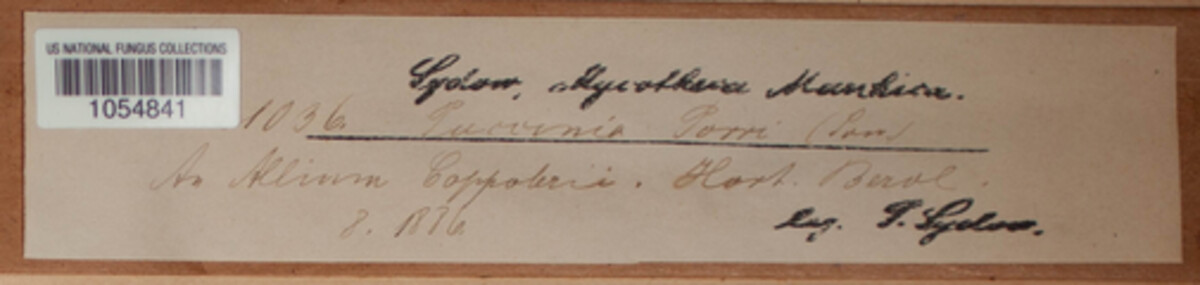 US NATIONAL FUNGUS COLLECTIONS
1054841
Sydow, Mycotheca Marchica.
1036. Puccinia Porri (Sow)
An Allium Coppoleri. Hort. Berol.
8. 1886
leg. P. Sydow.